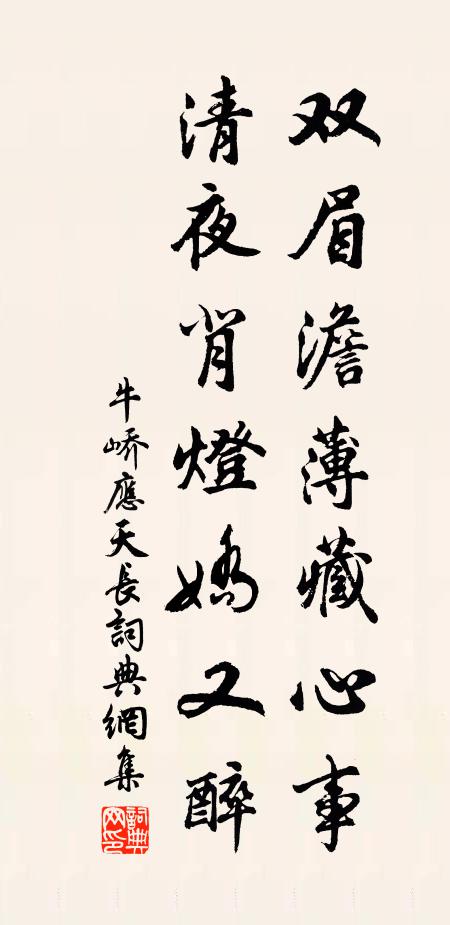 双眉澹薄藏心事
清夜背燈嬌又醉
牛嶠應天長詞典網集
詞典网印